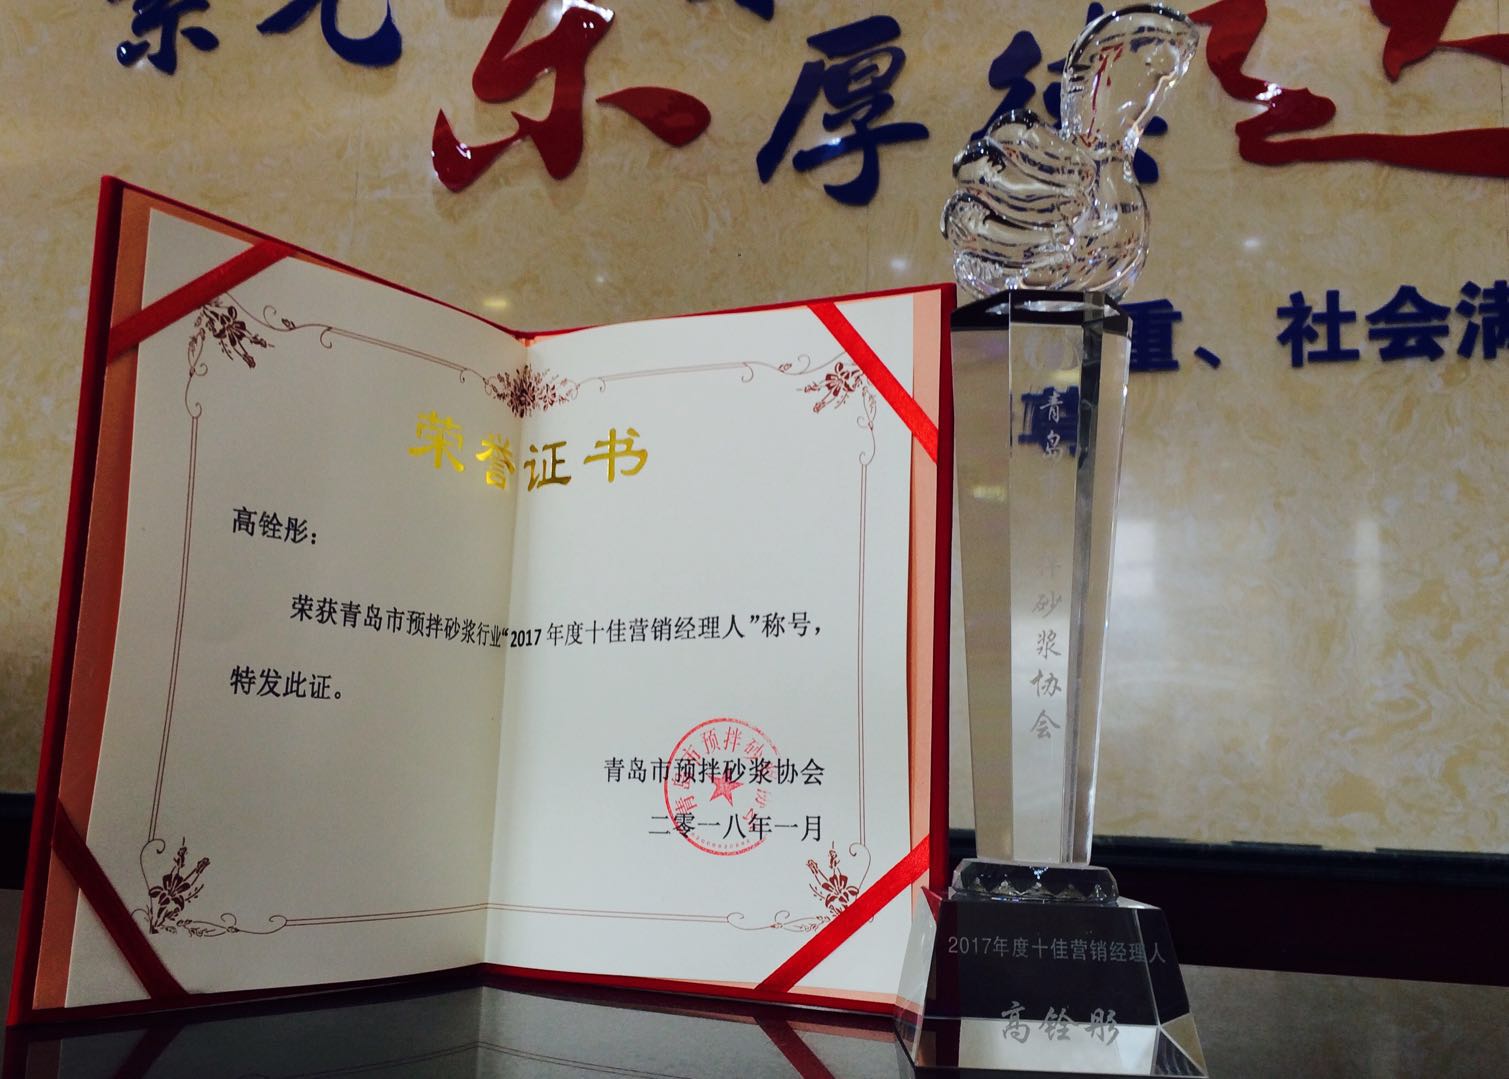 乐
厚德
重、社会满
荣誉证书
高铨彤：
荣获青岛市预拌砂浆行业“2017年度十佳营销经理人”称号，
特发此证。
青岛市预拌砂浆协会
二零一八年一月
青岛市预拌砂
青岛
拌砂浆协会
2017年度十佳营销经理人
高铨彤